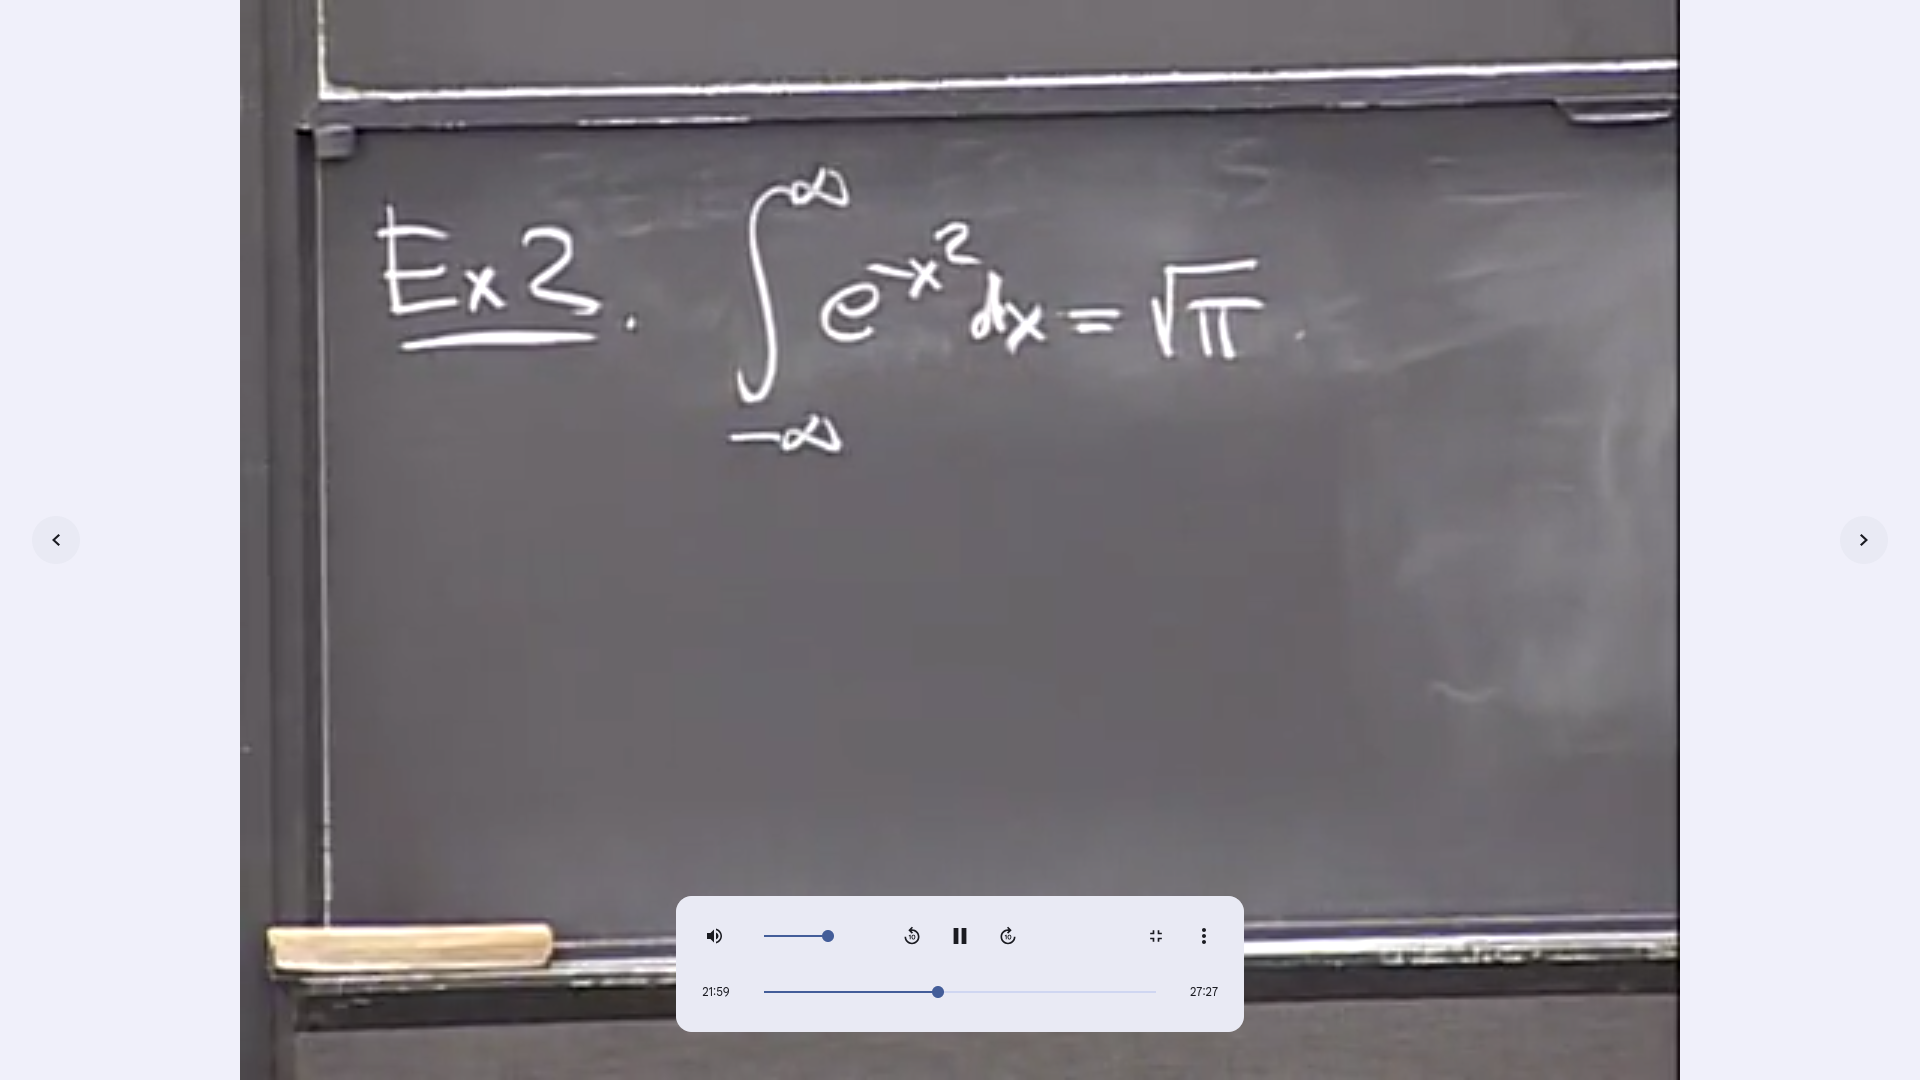 Ex 2. ∫_{-∞}^{∞} e^{-x^2} dx = √π.
10 10
21:59 27:27